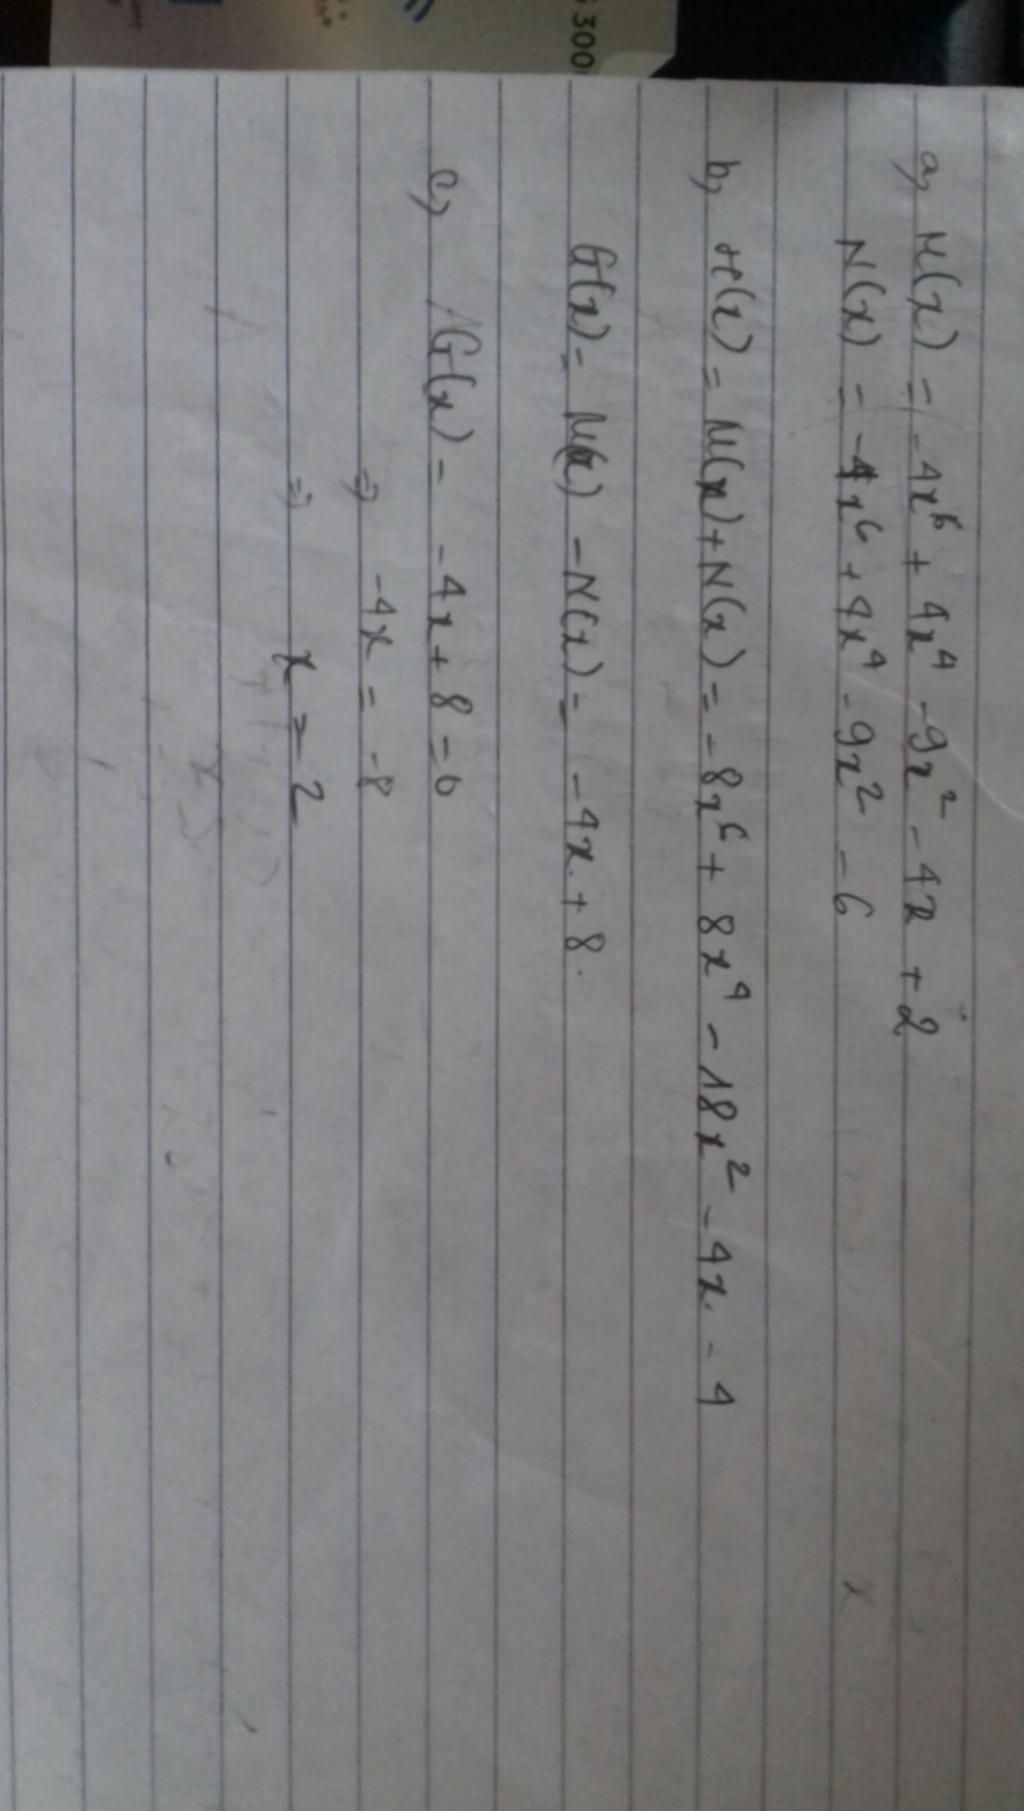 a, M(x) = -4x⁶ + 4x⁴ - 9x² - 4x + 2
N(x) = -4x⁶ + 4x⁴ - 9x² - 6
b, H(x) = M(x) + N(x) = -8x⁶ + 8x⁴ - 18x² - 4x - 4
G(x) = M(x) - N(x) = -4x + 8.
c, G(x) = -4x + 8 = 0
⇒ -4x = -8
⇒ x = 2
300